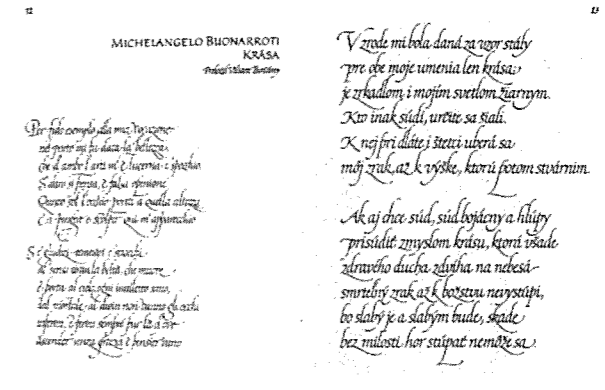 12
MICHELANGELO BUONARROTI
KRÁSA
Preložil Viliam Turčány
Per fido esemplo alla mia vocazione
nel parto mi fu data la bellezza,
che d'ambo l'arti m'è lucerna e specchio.
S'altro si pensa, è falsa opinione.
Questo sol l'occhio porta a quella altezza
c'a pingere e scolpir qui m'apparecchio.
S'e' giudizi temerari e sciocchi
al senso tiran la beltà, che muove
e porta al cielo ogni intelletto sano,
dal mortale al divin non vanno gli occhi
infermi, e fermi sempre pur là d'ove
ascender senza grazia è pensier vano.
13
V zrode mi bola daná za vzor stály
pre obe moje umenia len krása;
je zrkadlom i mojím svetlom žiarnym.
Kto inak súdi, určite sa šiali.
K nej pri dláte i štetci uberá sa
môj zrak, až k výške, ktorú potom stvárnim.
Ak aj chce súd, súd bojácny a hlúpy
prisúdiť zmyslom krásu, ktorá všade
zdravého ducha zdvíha na nebesá
smrteľný zrak až k božstvu nevystúpi,
bo slabý je a slabým bude, skade
bez milosti hor stúpať nemôže sa.